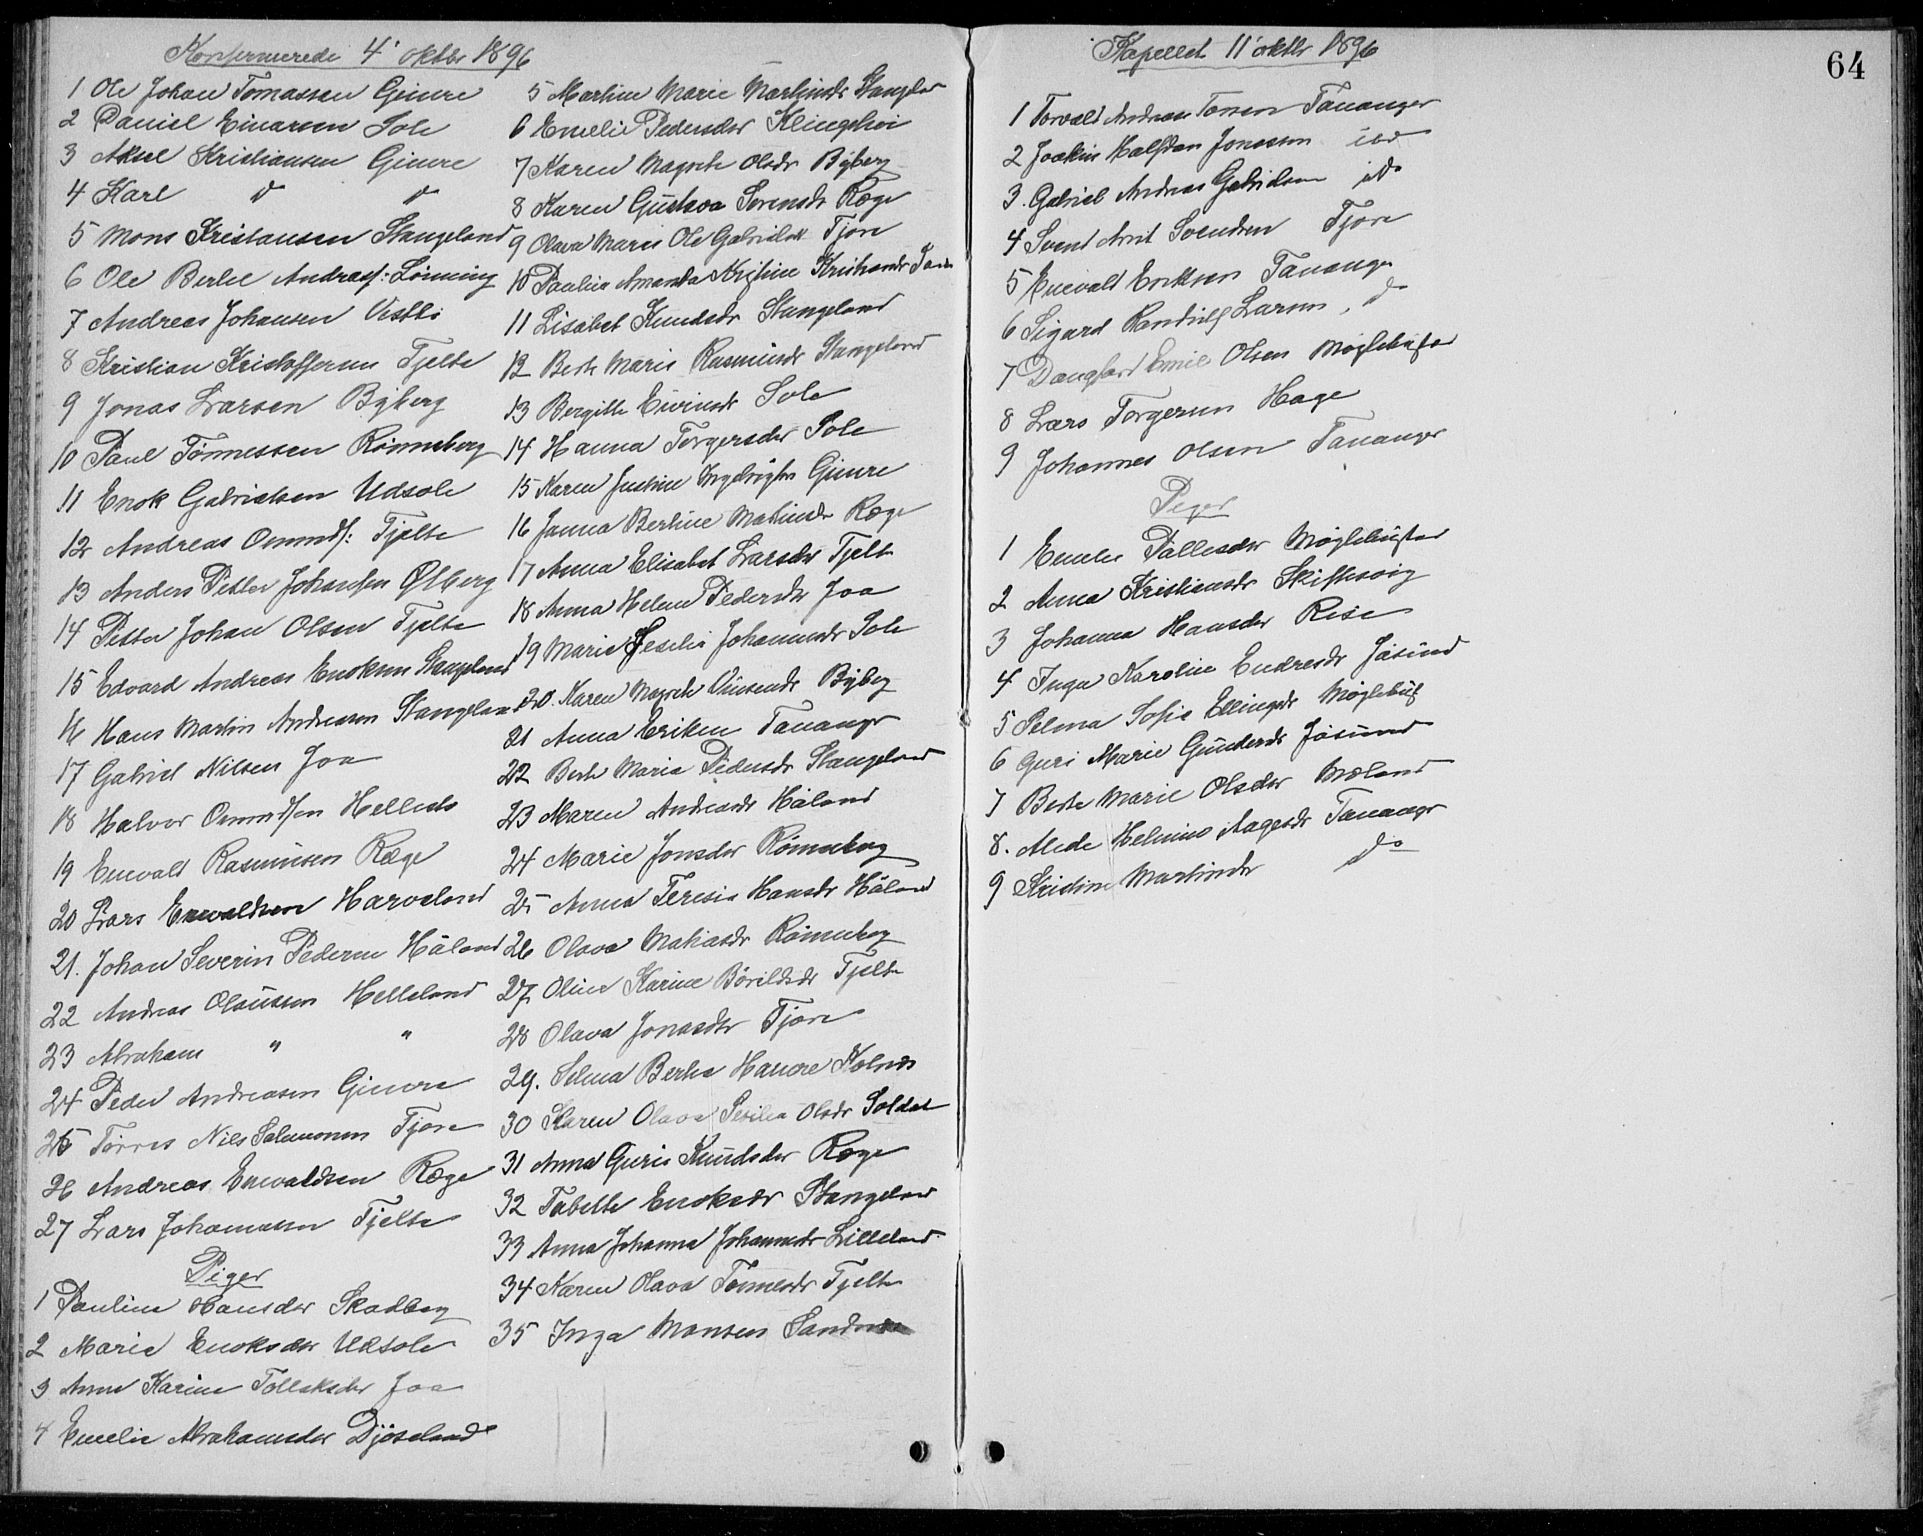 Konfermerede 4' oktbr 1896
1 Ole Johan Tomassen Gimre
2 Daniel Einarsen Sole
3 Aksel Kristiansen Gimre
4 Karl do do
5 Mons Kristansen Stangeland
6 Ole Bertel Andreass: Lønning
7 Andreas Johansen Vistli
8 Kristian Kristoffersen Tjelte
9 Jonas Larsen Byberg
10 Paul Tønnessen Rønneberg
11 Enok Gabrielsen Udsole
12 Andreas Ommds: Tjelte
13 Anders Petter Johansen Ølberg
14 Petter Johan Olsen Tjelte
15 Edvard Andreas Enoksen Stangeland
16 Hans Martin Andreasen Stangeland
17 Gabriel Nilsen Joa
18 Halvor Ommdsen
19 Enevald Rasmusen Ræge
20 Lars Enevaldsen Harveland
21. Johan Severin Pedersen Håland
22 Andreas Olaussen Helleland
23 Abraham " "
24 Peder Andreasen Gimre
25 Tørres Nils Salomonsen Tjore
26 Andreas Enevaldsen Ræge
27 Lars Johannesen Tjelte
Piger
1 Pauline Hansdtr Skadberg
2 Marie Enoksdtr Udsole
3 Anne Karine Tollaksdtr Joa
4 Emelie Abrahamsdtr Djøseland
5 Martine Marie Martinsdr Stangeland
6 Emelie Pedersdtr Klingshei
7 Karen Magrete Olsdr Byberg
8 Karen Gustava Sørensdr Ræge
9 Olava Marie Ole Gabrielsd Tjore
10 Pauline Amanda Kristine Kristiansdr
11 Lisabet Knudsdr Stangeland
12 Berte Marie Rasmusdr Stangeland
13 Bergitte Eivinsdr Sole
14 Hanna Torgersdtr Sole
15 Karen Justine Ingebrigtsd Gimre
16 Janna Bertine Martinsdr Ræge
17 Anna Elisabet Larsdtr Tjelte
18 Anna Helene Pedersdtr Joa
19 Marie Sesilie Johannesdr Sole
20. Karen Magrete Vinsensdr Byberg
21 Anna Eriksen Tananger
22 Berte Marie Pedersdr Stangeland
23 Maren Andreasdr Håland
24 Marie Jonsdtr Rønneberg
25 Anna Teresia Hansdr Håland
26 Olava Matiasdr Rønneberg
27 Oline Karine Bårildsdr Tjelte
28 Olava Jonasdtr Tjore
29. Selma Berta Hanore Kolnes
30 Karen Olava Sesilia Olsdr Soldal
31 Anna Guri Knudsdtr Ræge
32 Tabette Enoksdr Stangeland
33 Anna Johanna Johannesdr Lilleland
34 Karen Olava Tønnesdr Tjelte
35 Inga Monsen
Kapellet 11' oktbr 1896
64
1 Torvald Andreas Torsen Tananger
2 Joakim Halfdan Jonassen ido
3. Gabriel Andreas Gabrielsen ido
4 Svend Arnt Svendsen Tjore
5 Enevald Eriksen Tananger
6 Sigurd Randulf Larsen, do
7 Dangfard Emil Olsen Møglebustad
8 Lars Torgersen Hage
9 Johannes Olsen Tananger
Piger
1 Emelie Pallesdtr Møglebustad
2 Anna Kristiansdr Skiftesvig
3 Johanna Hansdtr Risa
4 Inga Karoline Endresdr Jåsund
5 Selma Sofie Ellingsdr Møglebust
6 Guri Marie Gundersdr Jåsund
7 Berte Marie Olsdtr Meland
8. Alede Helmine Aagesdr Tananger
9 Kristine Martinsdtr do